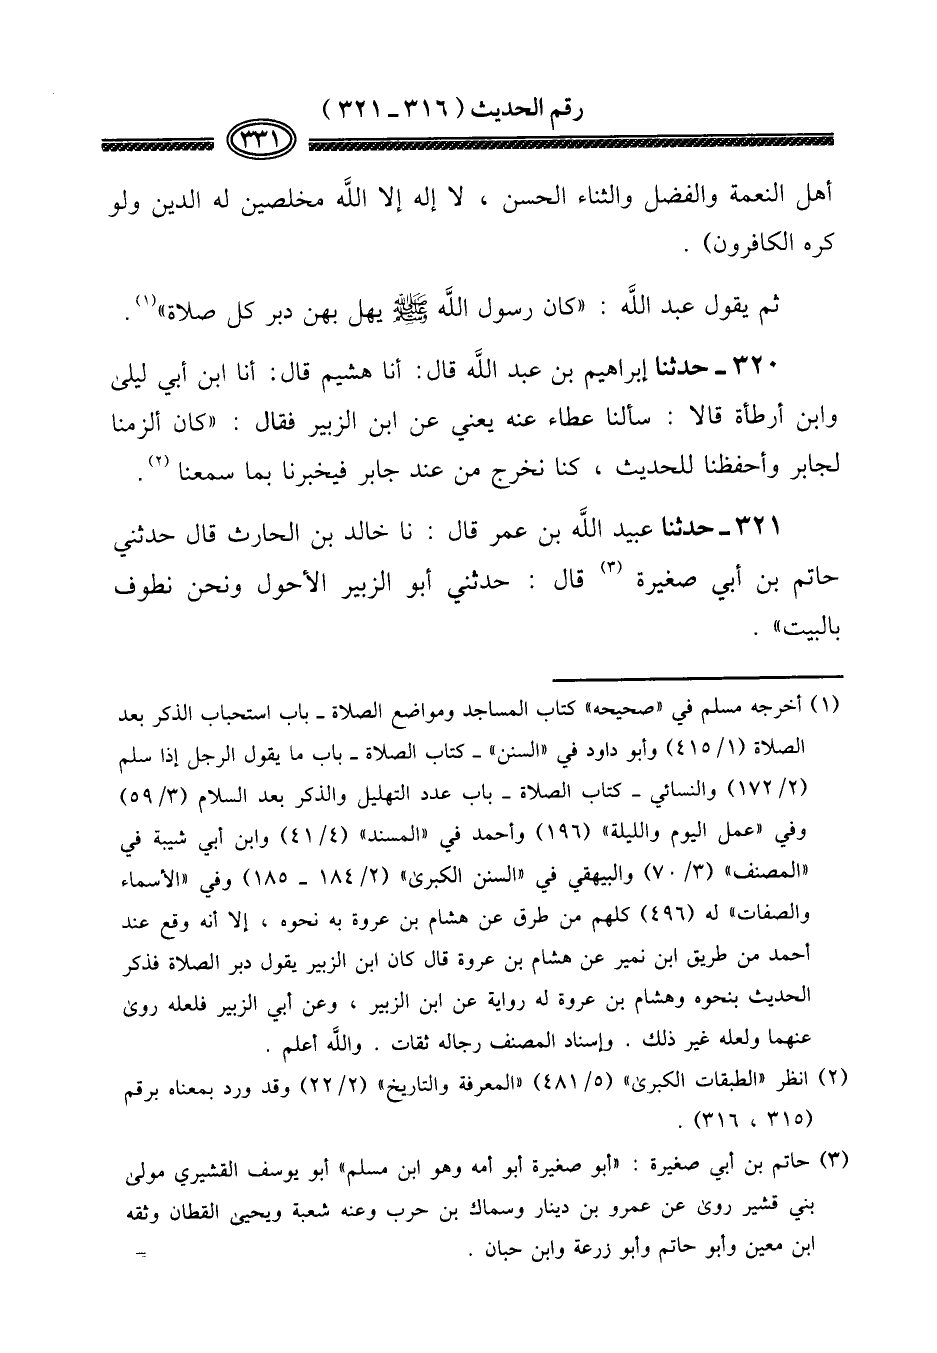 رقم الحديث ( ٣١٦ ـ ٣٢١ )
٣٣١
أهل النعمة والفضل والثناء الحسن ، لا إله إلا اللَّه مخلصين له الدين ولو
كره الكافرون) .
ثم يقول عبد اللَّه : «كان رسول اللَّه ﷺ يهل بهن دبر كل صلاة»(١).
٣٢٠ ـ حدثنا إبراهيم بن عبد اللَّه قال: أنا هشيم قال: أنا ابن أبي ليلى
وابن أرطأة قالا : سألنا عطاء عنه يعني عن ابن الزبير فقال : «كان ألزمنا
لجابر وأحفظنا للحديث ، كنا نخرج من عند جابر فيخبرنا بما سمعنا (٢).
٣٢١ ـ حدثنا عبيد اللَّه بن عمر قال : نا خالد بن الحارث قال حدثني
حاتم بن أبي صغيرة (٣) قال : حدثني أبو الزبير الأحول ونحن نطوف
بالبيت» .
(١) أخرجه مسلم في «صحيحه» كتاب المساجد ومواضع الصلاة ـ باب استحباب الذكر بعد
الصلاة (١/ ٤١٥) وأبو داود في «السنن» ـ كتاب الصلاة ـ باب ما يقول الرجل إذا سلم
(٢/ ١٧٢) والنسائي ـ كتاب الصلاة ـ باب عدد التهليل والذكر بعد السلام (٣/ ٥٩)
وفي «عمل اليوم والليلة» (١٩٦) وأحمد في «المسند» (٤/ ٤١) وابن أبي شيبة في
«المصنف» (٣/ ٧٠) والبيهقي في «السنن الكبرى» (٢/ ١٨٤ ـ ١٨٥) وفي «الأسماء
والصفات» له (٤٩٦) كلهم من طرق عن هشام بن عروة به نحوه ، إلا أنه وقع عند
أحمد من طريق ابن نمير عن هشام بن عروة قال كان ابن الزبير يقول دبر الصلاة فذكر
الحديث بنحوه وهشام بن عروة له رواية عن ابن الزبير ، وعن أبي الزبير فلعله روى
عنهما ولعله غير ذلك . وإسناد المصنف رجاله ثقات . واللَّه أعلم .
(٢) انظر «الطبقات الكبرى» (٥/ ٤٨١) «المعرفة والتاريخ» (٢/ ٢٢) وقد ورد بمعناه برقم
(٣١٥ ، ٣١٦) .
(٣) حاتم بن أبي صغيرة : «أبو صغيرة أبو أمه وهو ابن مسلم» أبو يوسف القشيري مولى
بني قشير روى عن عمرو بن دينار وسماك بن حرب وعنه شعبة ويحيى القطان وثقه
ابن معين وأبو حاتم وأبو زرعة وابن حبان . =